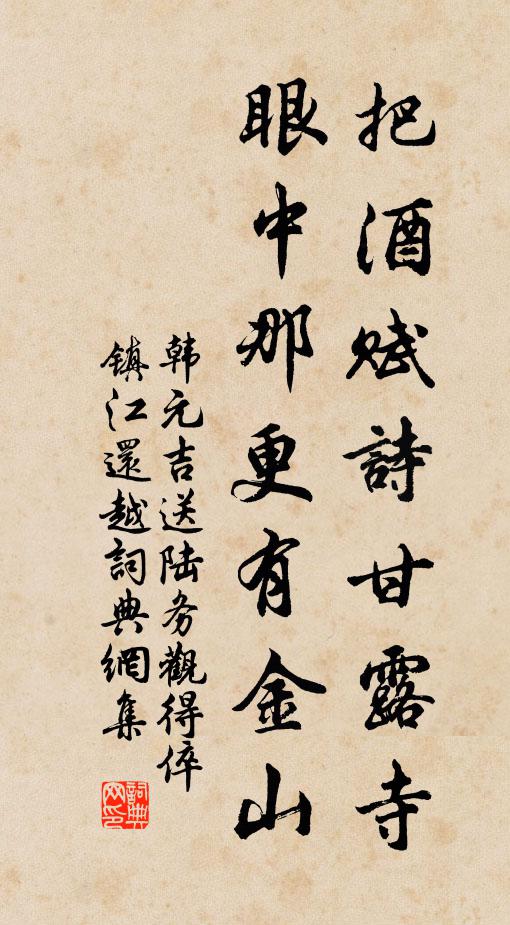 把酒赋詩甘露寺
眼中那更有金山
韩元吉送陆务觀得倅
镇江還越詞典網集
詞典
网印